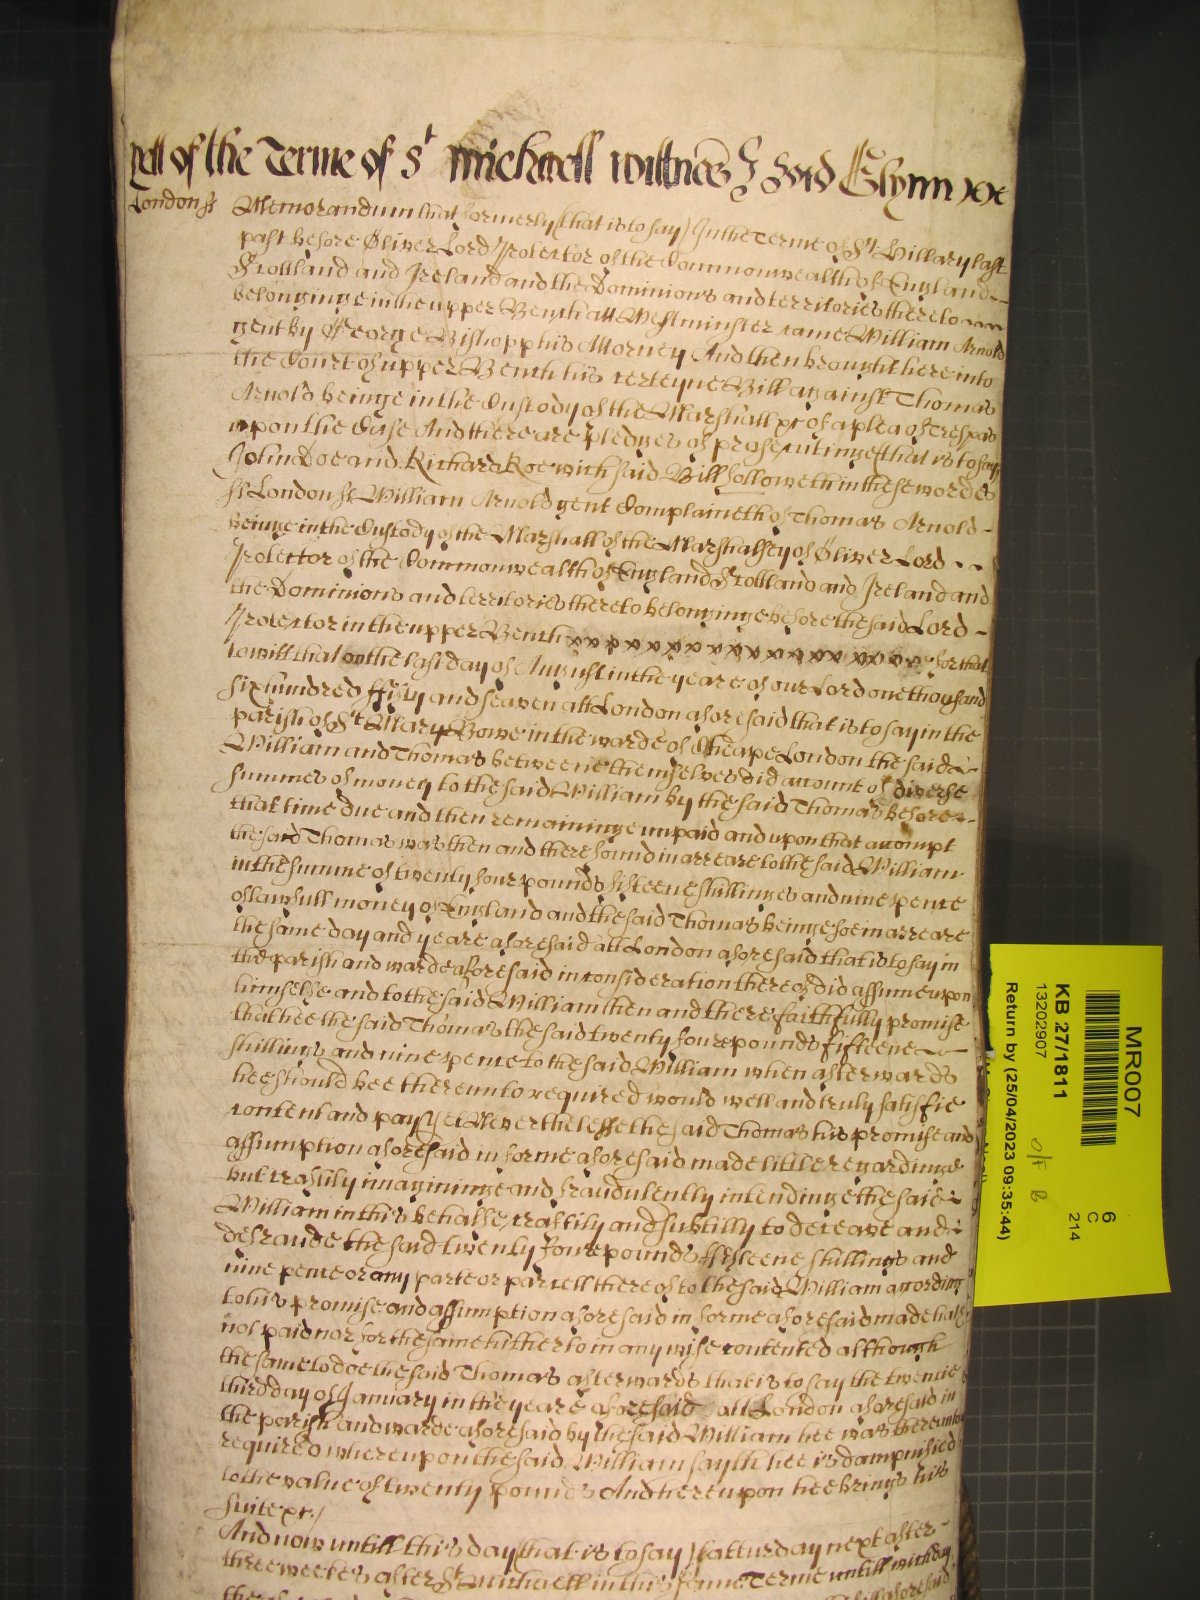 yett of the Terme of St Michaell wittnes J Lord Glynn xx
London ss Memorandum that formerly (that is to say) In the Terme of St Hillary last
past before Oliver Lord Protector of the Commonwealth of England
Scottland and Ireland and the Dominions and territories thereto
belonginge in the upper Bench att Westminster came William Arnold
gent by George Bishopp his Attorney And then brought here into
the Court of upper Bench his certeyne Bill against Thomas
Arnold beinge in the Custody of the Marshall xc of a plea of Trespas
upon the Case And there are pledges of prosecutinge (that is to say
John Doe and Richard Roe wich said Bill followeth in these wordes
ss London ss William Arnold gent Complaineth of Thomas Arnold
beinge in the Custody of the Marshall of the Marshalsey of Oliver Lord
Protector of the Commonwealth of England Scottland and Ireland and
the Dominions and territories thereto belonginge before the said Lord
Protector in the upper Bench xxxxxxxxxxxxxxxxxx for that
to witt that on the last day of August in the yeare of our Lord one thousand
six hundred fifty and seaven att London aforesaid that is to say in the
parish of St Mary Bowe in the warde of Cheape London the said
William and Thomas betweene themselves did account of diverse
summes of money to the said William by the said Thomas before
that time due and then remaininge unpaid and upon that accompt
the said Thomas was then and there found in arreare to the said William
in the summe of twenty foure pounds fifteene shillinges and nine pence
of lawfull money of England and the said Thomas beinge soe in arreare
the same day and yeare aforesaid att London aforesaid that is to say in
the parish and warde aforesaid in consideration thereof did assume upon
himselfe and to the said William then and there faithfully promise
that hee the said Thomas the said twenty foure pounds fifteene
shillings and nine pence to the said William when afterwards
hee should bee thereunto required would well and truly satisfie
content and pay Yet Neverthelesse the said Thomas his promise and
assumption aforesaid in forme aforesaid made little regardinge
but craftily imagininge and fraudulently intendinge the said
William in this behalfe, craftily and subtilly to deceave and
defraude the said twenty foure pounds fifteene shillings and
nine pence or any parte or parcell thereof to the said William according
to his promise and assumption aforesaid in forme aforesaid made hath
not paid nor for the same hitherto in any wise contented although
the same to doe the said Thomas afterwards that is to say the twentie
third day of January in the yeare aforesaid att London aforesaid in
the parish and warde aforesaid by the said William hee was thereunto
required whereupon the said William sayth hee is dampnified
to the value of twenty pounds And thereupon hee brings his
suite xc /
And now untill this day (that is to say) satturday next after
three weekes after St Michaell in this same Terme untill which day
aforesaid
MR007
6
C
214
KB 27/1811
13202907
Return by (25/04/2023 09:35:44)